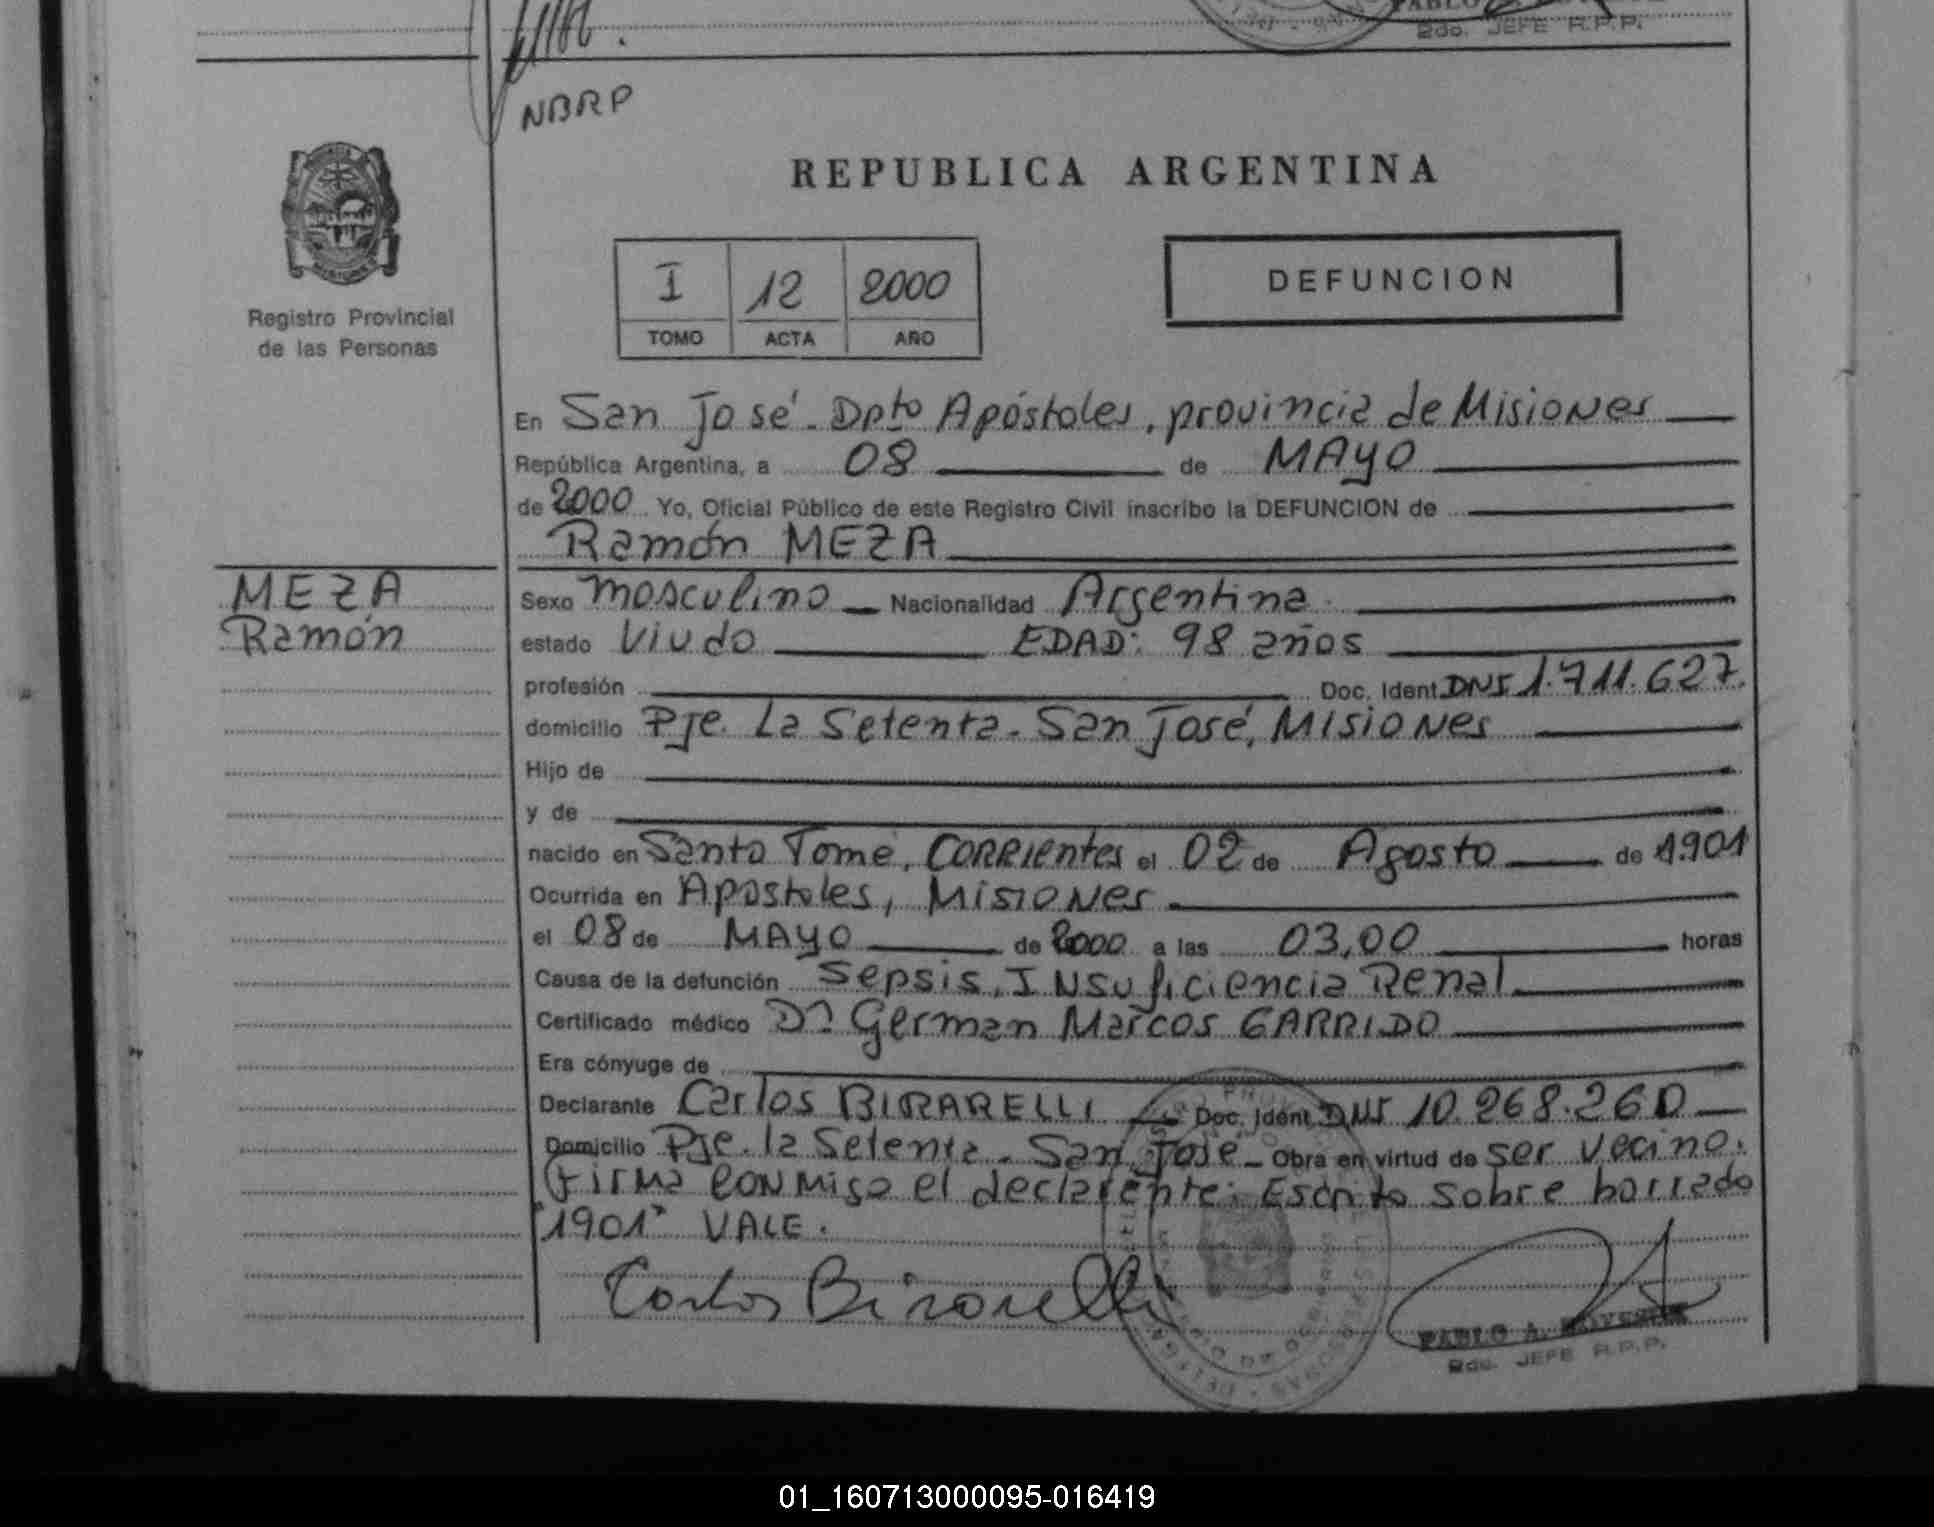 2do. JEFE R.P.P.
NBRP
REPUBLICA ARGENTINA
I 12 2000
TOMO ACTA AÑO
DEFUNCION
Registro Provincial
de las Personas
En San José. Dpto Apóstoles, provincia de Misiones
República Argentina, a 08 de MAYO
de 2000 Yo, Oficial Público de este Registro Civil inscribo la DEFUNCION de
Ramón MEZA
MEZA
Ramón
Sexo masculino Nacionalidad Argentina.
estado Viudo EDAD: 98 años
profesión Doc. Ident. DNI 1.711.627.
domicilio Pje. La Setenta. San José, Misiones
Hijo de
y de
nacido en Santo Tomé, Corrientes el 02 de Agosto de 1.901
Ocurrida en Apostoles, Misiones
el 08 de MAYO de 2000 a las 03,00 horas
Causa de la defunción Sepsis, Insuficiencia Renal
Certificado médico Dr. German Marcos GARRIDO
Era cónyuge de
Declarante Carlos BIRARELLI Doc. Ident. DNI 10.268.260
Domicilio Pje. la Setenta. San José Obra en virtud de ser vecino.
Firma conmigo el declarente. Escrito sobre borrado
"1901" VALE.
Carlos Birarelli
PABLO A.
2do. JEFE R.P.P.
01_160713000095-016419